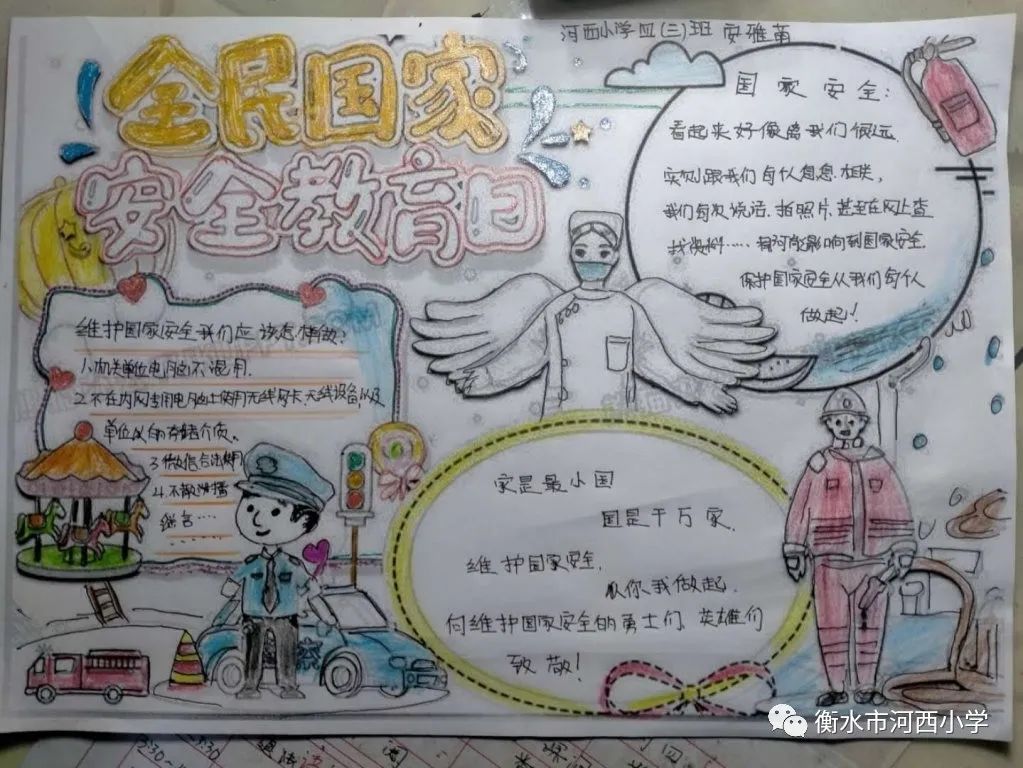 河西小学四(三)班 安雅茜
全民国家
安全教育日
国家安全:
看起来好像离我们很远
实则跟我们每个人息息相关,
我们每次说话、拍照片、甚至在网上查
找资料……都可能影响到国家安全.
保护国家安全从我们每个人
做起!
维护国家安全我们应该怎样做?
1.机关单位电脑不混用.
2.不在内网专用电脑上使用无线网卡、无线设备,以及
单位以外的存储介质。
3.微信合法使用
4.不散播
谣言……
家是最小国
国是千万家.
维护国家安全,
从你我做起.
向维护国家安全的勇士们、英雄们
致敬!
衡水市河西小学